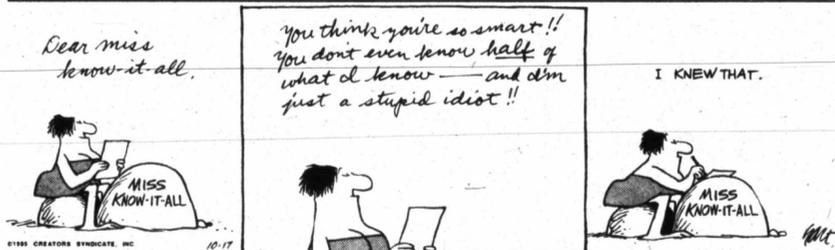 Dear miss
know-it-all.
MISS
KNOW-IT-ALL
©1995 CREATORS SYNDICATE, INC.
10-17
You think you're so smart!!
You don't even know half of
what I know — and I'm
just a stupid idiot!!
I KNEW THAT.
MISS
KNOW-IT-ALL